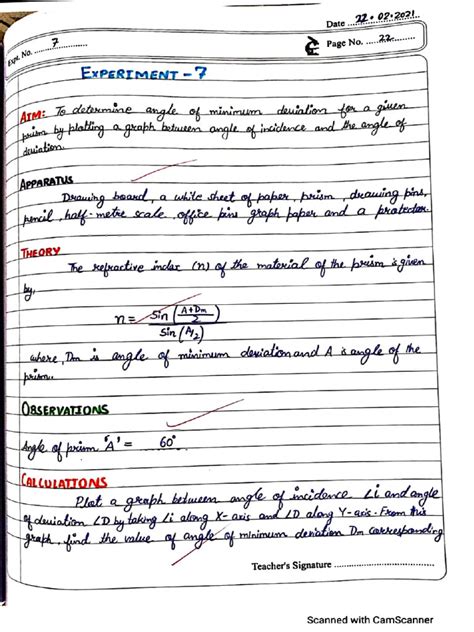 Date 22.02.2021
Expt. No. 7
Page No. 22
EXPERIMENT - 7
AIM: To determine angle of minimum deviation for a given
prism by plotting a graph between angle of incidence and the angle of
deviation.
APPARATUS
Drawing board, a white sheet of paper, prism, drawing pins,
pencil, half-metre scale, office pins graph paper and a protector.
THEORY
The refractive index (n) of the material of the prism is given
by,
n = Sin (A+Dm/2) / Sin (A/2)
where, Dm is angle of minimum deviation and A is angle of the
prism.
OBSERVATIONS
Angle of prism 'A' = 60°
CALCULATIONS
Plot a graph between angle of incidence ∠i and angle
of deviation ∠D by taking ∠i along X-axis and ∠D along Y-axis. From this
graph, find the value of angle of minimum deviation Dm corresponding
Teacher's Signature
Scanned with CamScanner